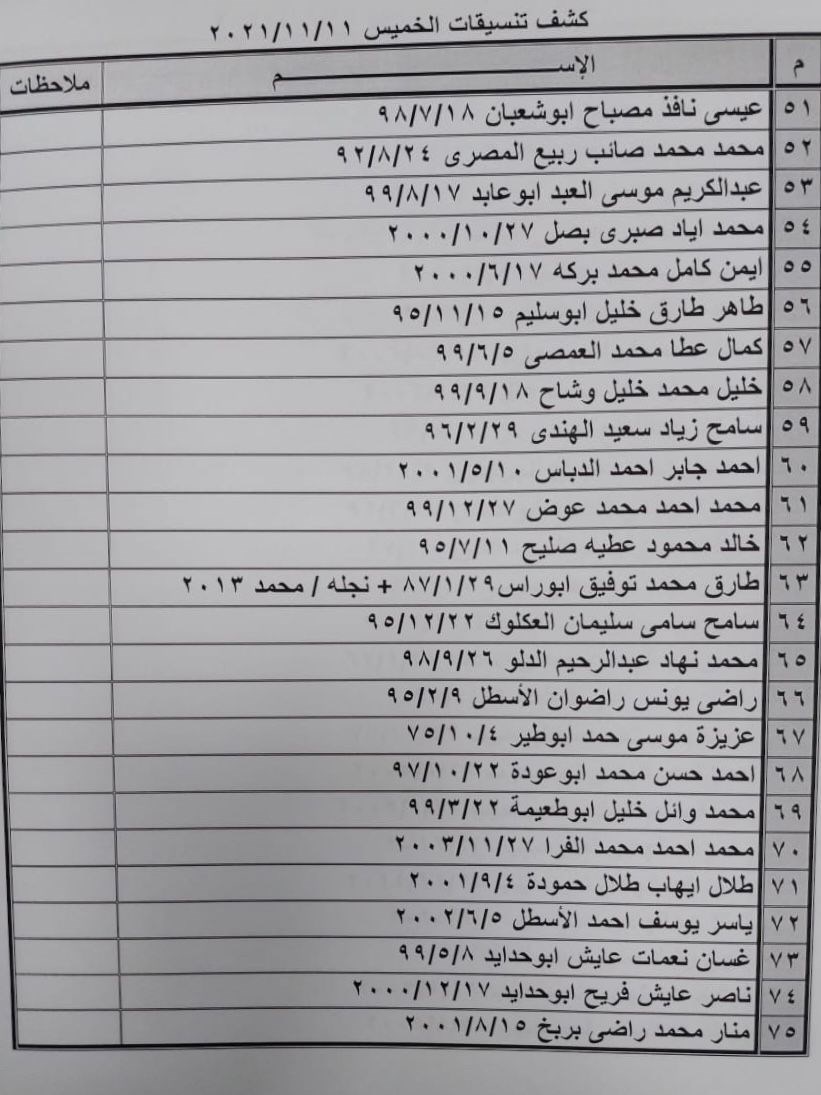 كشف تنسيقات الخميس ٢٠٢١/١١/١١
م الإســـــــم ملاحظات
٥١ عيسى نافذ مصباح ابوشعبان ٩٨/٧/١٨
٥٢ محمد محمد صائب ربيع المصرى ٩٢/٨/٢٤
٥٣ عبدالكريم موسى العبد ابوعابد ٩٩/٨/١٧
٥٤ محمد اياد صبرى بصل ٢٠٠٠/١٠/٢٧
٥٥ ايمن كامل محمد بركه ٢٠٠٠/٦/١٧
٥٦ طاهر طارق خليل ابوسليم ٩٥/١١/١٥
٥٧ كمال عطا محمد العمصى ٩٩/٦/٥
٥٨ خليل محمد خليل وشاح ٩٩/٩/١٨
٥٩ سامح زياد سعيد الهندى ٩٦/٢/٢٩
٦٠ احمد جابر احمد الدباس ٢٠٠١/٥/١٠
٦١ محمد احمد محمد عوض ٩٩/١٢/٢٧
٦٢ خالد محمود عطيه صليح ٩٥/٧/١١
٦٣ طارق محمد توفيق ابوراس٨٧/١/٢٩ + نجله / محمد ٢٠١٣
٦٤ سامح سامى سليمان العكلوك ٩٥/١٢/٢٢
٦٥ محمد نهاد عبدالرحيم الدلو ٩٨/٩/٢٦
٦٦ راضى يونس راضوان الأسطل ٩٥/٢/٩
٦٧ عزيزة موسى حمد ابوطير ٧٥/١٠/٤
٦٨ احمد حسن محمد ابوعودة ٩٧/١٠/٢٢
٦٩ محمد وائل خليل ابوطعيمة ٩٩/٣/٢٢
٧٠ محمد احمد محمد الفرا ٢٠٠٣/١١/٢٧
٧١ طلال ايهاب طلال حمودة ٢٠٠١/٩/٤
٧٢ ياسر يوسف احمد الأسطل ٢٠٠٢/٦/٥
٧٣ غسان نعمات عايش ابوحدايد ٩٩/٥/٨
٧٤ ناصر عايش فريح ابوحدايد ٢٠٠٠/١٢/١٧
٧٥ منار محمد راضى بربخ ٢٠٠١/٨/١٥